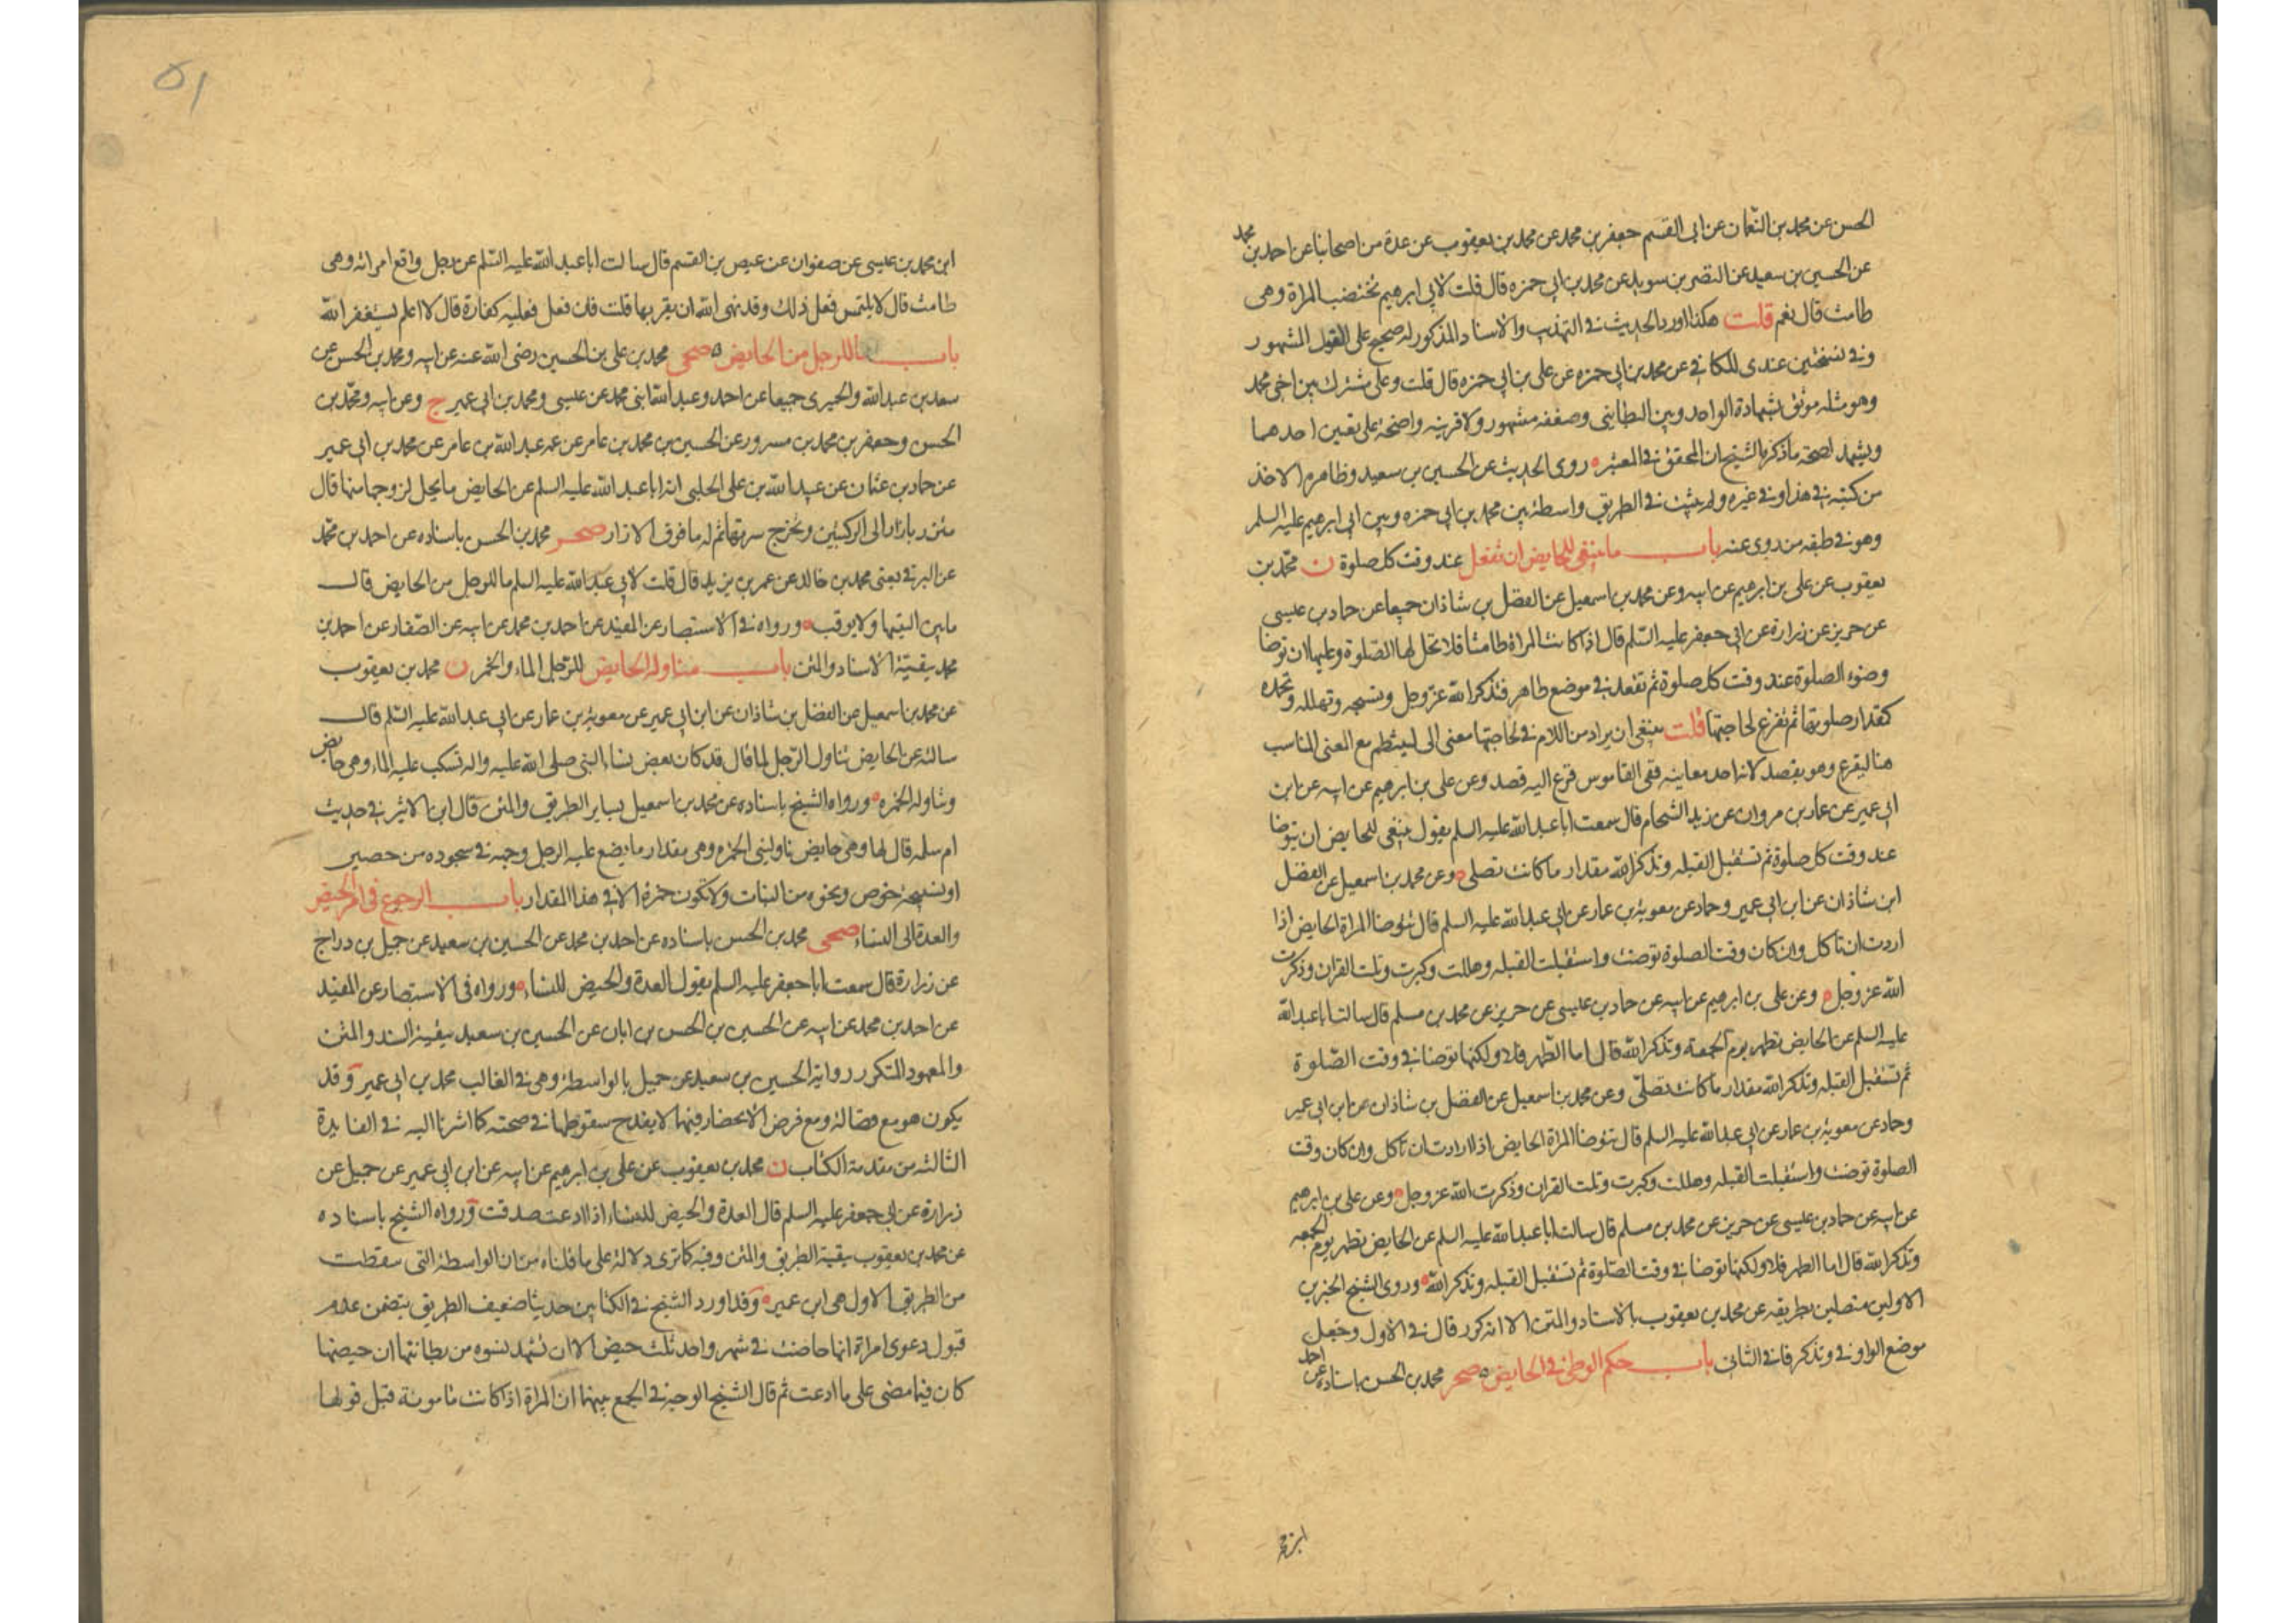 الحسن عن محمد بن النعمان عن ابى القسم جعفر بن محمد عن محمد بن يعقوب عن عدة من اصحابنا عن احمد بن محمد
عن الحسين بن سعيد عن النضر بن سويد عن محمد بن ابى حمزه قال قلت لابى ابرهيم تختضب المراة وهى
طامث قال نعم قلت هكذا اورد الحديث فى التهذيب والاسناد المذكور له صحيح على القول المشهور
وفى نسختين عندى للكافى عن محمد بن ابى حمزه عن على بن ابى حمزه قال قلت وعلى مشترك بين اخى محمد
وهو مثله موثق بشهادة الواحد وبين البطاينى وضعفه مشهور ولا قرينه واضحة على تعيين احدهما
ويشهد لصحة ما ذكره الشيخ ان المحقق فى المعتبر روى الحديث عن الحسين بن سعيد وظاهره الاخذ
من كتبه فى هذا وفى غيره ولم يثبت فى الطريق واسطة بين محمد بن ابى حمزه وبين ابى ابرهيم عليه السلم
وهو فى طبقه من روى عنه باب ما ينبغى للحايض ان تفعل عند وقت كل صلوة ن محمد بن
يعقوب عن على بن ابرهيم عن ابيه وعن محمد بن اسمعيل عن الفضل بن شاذان جميعا عن حماد بن عيسى
عن حريز عن زرارة عن ابى جعفر عليه السلم قال اذا كانت المراة طامثا فلا تحل لها الصلوة وعليها ان توضا
وضوء الصلوة عند وقت كل صلوة ثم تقعد فى موضع طاهر فتذكر الله عز وجل وتسبحه وتهلله وتحمده
كمقدار صلوتها ثم تفرغ لحاجتها قلت ينبغى ان يراد من اللام فى لحاجتها معنى الى لينتظم مع المعنى المناسب
هنا ليفرغ وهو يقصد لانه احد معاينه ففى القاموس فرغ اليه قصد وعن على بن ابرهيم عن ابيه عن ابن
ابى عمير عن عمار بن مروان عن زيد الشحام قال سمعت ابا عبد الله عليه السلم يقول ينبغى للحايض ان توضا
عند وقت كل صلوة ثم تستقبل القبله وتذكر الله مقدار ما كانت تصلى وعن محمد بن اسمعيل عن الفضل
ابن شاذان عن ابن ابى عمير وحماد عن معوية بن عمار عن ابى عبد الله عليه السلم قال تتوضا المراة الحايض اذا
اردت ان تاكل وان كان وقت الصلوة توضت واستقبلت القبله وهللت وكبرت وتلت القران وذكرت
الله عز وجل وعن على بن ابرهيم عن ابيه عن حماد بن عيسى عن حريز عن محمد بن مسلم قال سالت ابا عبد الله
عليه السلم عن الحايض تطهر يوم الجمعة وتذكر الله قال اما الطهر فلا ولكنها توضا فى وقت الصلوة
ثم تستقبل القبله وتذكر الله مقدار ما كانت تصلى وعن محمد بن اسمعيل عن الفضل بن شاذان عن ابن ابى عمير
وحماد عن معوية بن عمار عن ابى عبد الله عليه السلم قال تتوضا المراة الحايض اذا ارادت ان تاكل وان كان وقت
الصلوة توضت واستقبلت القبله وهللت وكبرت وتلت القران وذكرت الله عز وجل وعن على بن ابرهيم
عن ابيه عن حماد بن عيسى عن حريز عن محمد بن مسلم قال سالت ابا عبد الله عليه السلم عن الحايض تطهر يوم الجمعه
وتذكر الله قال اما الطهر فلا ولكنها توضا فى وقت الصلوة ثم تستقبل القبله وتذكر الله وروى الشيخ الخبرين
الاولين متصلين بطريقه عن محمد بن يعقوب بالاسناد والمتن الا انه كرر قال فى الاول وجعل
موضع الواو فى وتذكر فا فى الثانى باب حكم الوطى فى الحايض صحر محمد بن الحسن باسناده عن احمد
ابن محمد
٥١
ابن محمد بن عيسى عن صفوان عن عيص بن القسم قال سالت ابا عبد الله عليه السلم عن رجل واقع امراته وهى
طامث قال لا يلتمس فعل ذلك وقد نهى الله ان يقربها قلت فان فعل فعليه كفارة قال لا اعلم يستغفر الله
باب ما للرجل من الحايض صحى محمد بن على بن الحسين رضى الله عنه عن ابيه ومحمد بن الحسن عن
سعد بن عبد الله والحميرى جميعا عن احمد وعبد الله ابنى محمد عن عيسى ومحمد بن ابى عمير ح وعن ابيه ومحمد بن
الحسن وجعفر بن محمد بن مسرور عن الحسين بن محمد بن عامر عن عمه عبد الله بن عامر عن محمد بن ابى عمير
عن حماد بن عثمان عن عبيد الله بن على الحلبى انه ابا عبد الله عليه السلم عن الحايض ما يحل لزوجها منها قال
تتزر بازار الى الركبتين وتخرج سرتها ثم له ما فوق الازار صحر محمد بن الحسن باسناده عن احمد بن محمد
عن البرقى يعنى محمد بن خالد عن عمر بن يزيد قال قلت لابى عبد الله عليه السلم ما للرجل من الحايض قال
ما بين اليتيها ولا يوقب ورواه فى الاستبصار عن المفيد عن احمد بن محمد عن ابيه عن الصفار عن احمد بن
محمد ببقية الاسناد والمتن باب مناوله الحايض للرجل الماء والخمر ن محمد بن يعقوب
عن محمد بن اسمعيل عن الفضل بن شاذان عن ابن ابى عمير عن معوية بن عمار عن ابى عبد الله عليه السلم قال
سالته عن الحايض تناول الرجل لما قال قد كان بعض نساء النبى صلى الله عليه واله تسكب عليه الماء وهى حايض
وتناوله الخمره ورواه الشيخ باسناده عن محمد بن اسمعيل بساير الطريق والمتن قال ابن الاثير فى حديث
ام سلمه قال لها وهى حايض ناولينى الخمره وهى مقدار ما يضع عليه الرجل وجهه فى سجوده من حصير
او نسيجة خوص ونحوه من النبات ولا تكون خمرة الا فى هذا المقدار باب الرجوع فى امر الحيض
والعدة الى النساء صحى محمد بن الحسن باسناده عن احمد بن محمد عن الحسين بن سعيد عن جميل بن دراج
عن زرارة قال سمعت ابا جعفر عليه السلم يقول العدة والحيض للنساء ورواه فى الاستبصار عن المفيد
عن احمد بن محمد عن ابيه عن الحسين بن الحسن بن ابان عن الحسين بن سعيد ببقية السند والمتن
والمعهود المتكرر رواية الحسين بن سعيد عن جميل بالواسطة وهى فى الغالب محمد بن ابى عمير وقد
يكون هو مع فضالة ومع فرض الانحصار فيهما لا يقدح سقوطها فى صحته كما اشرنا اليه فى الفايدة
الثالثه من مقدمة الكتاب ن محمد بن يعقوب عن على بن ابرهيم عن ابيه عن ابن ابى عمير عن جميل عن
زرارة عن ابى جعفر عليه السلم قال العدة والحيض للنساء اذا ادعت صدقت ورواه الشيخ باسناده
عن محمد بن يعقوب ببقية الطريق والمتن وفيه كما ترى دلالة على ما قلناه من ان الواسطة التى سقطت
من الطريق الاول هى ابن عمير وقد اورد الشيخ فى الكتابين حديثا ضعيف الطريق يتضمن عدم
قبول دعوى امراة انها حاضت فى شهر واحد ثلث حيض الا ان تشهد نسوه من بطانتها ان حيضها
كان فيما مضى على ما ادعت ثم قال الشيخ الوجه فى الجمع بينهما ان المراة اذا كانت مامونة قبل قولها